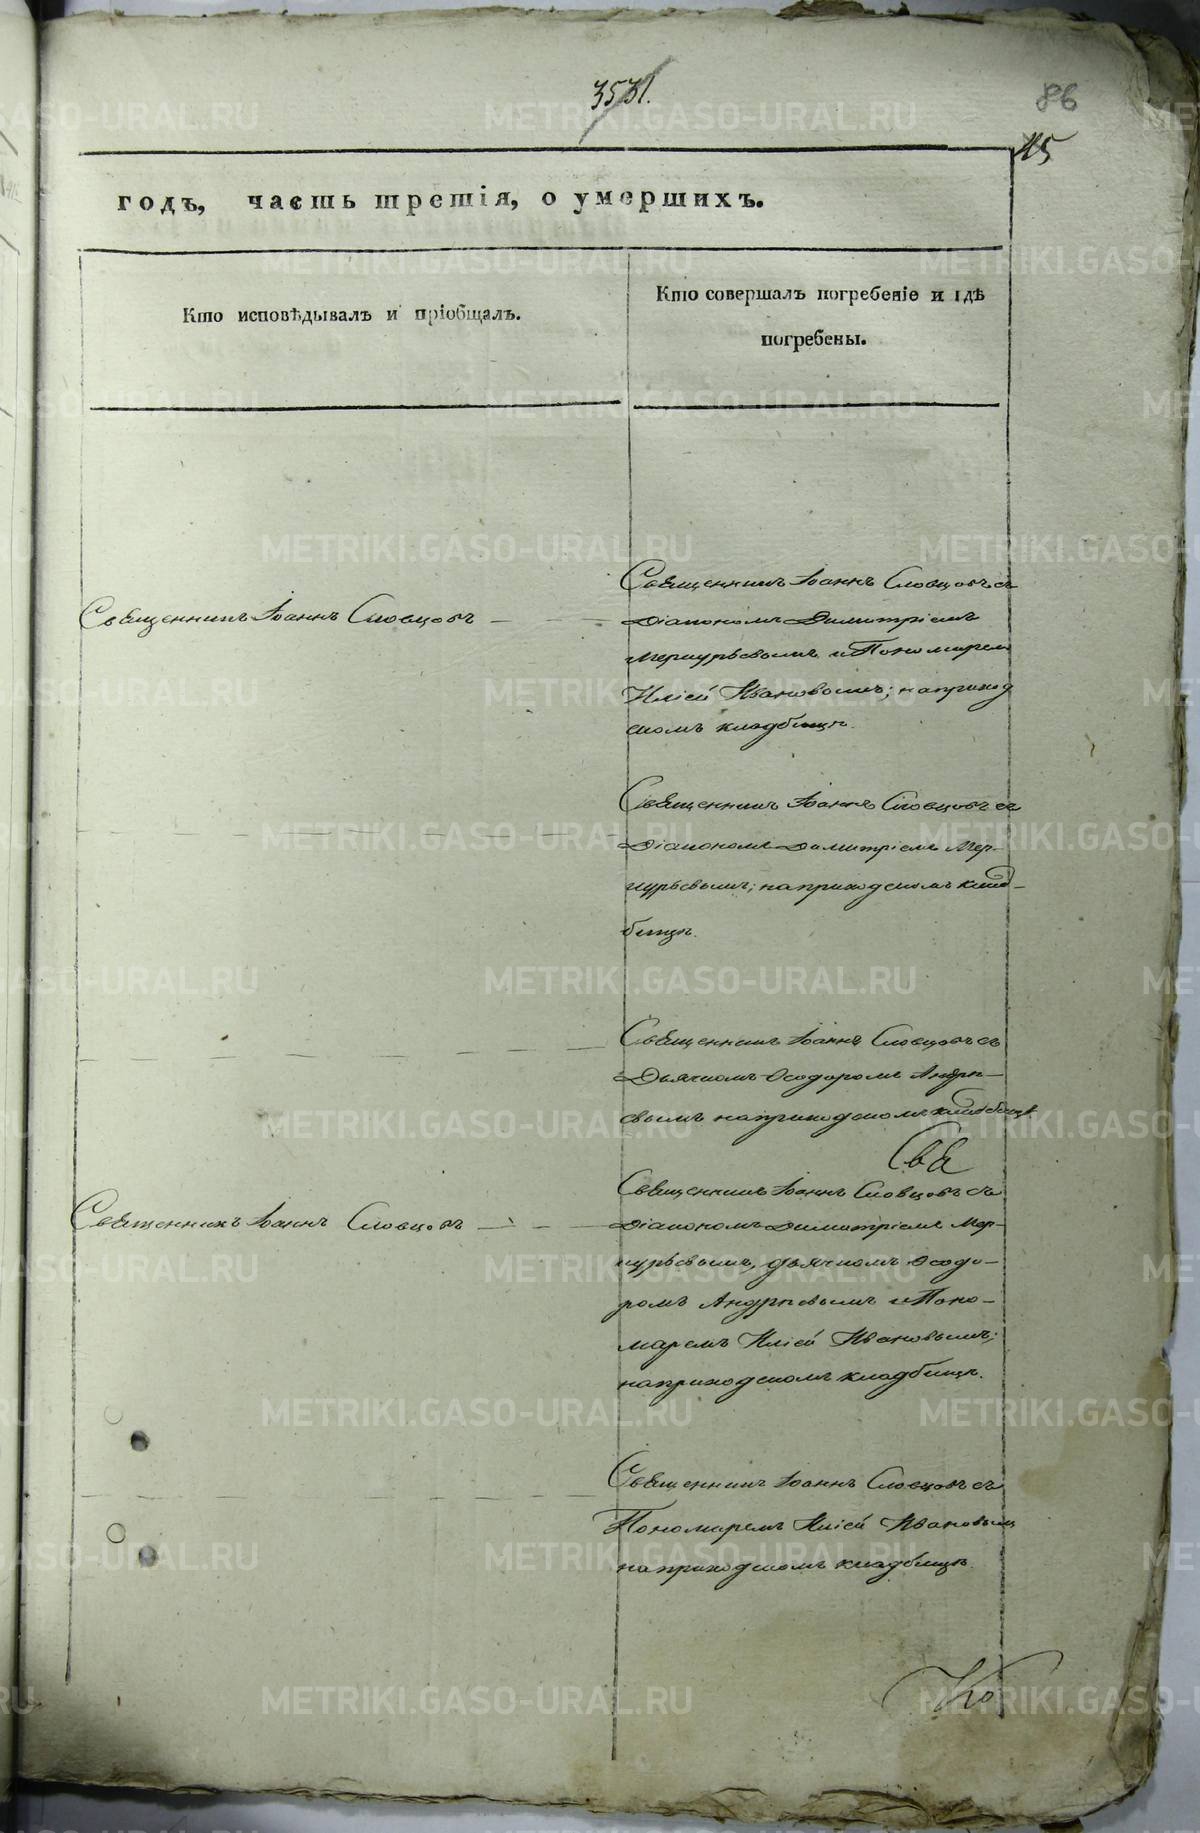 3531.
86
115
годъ, часть третія, о умершихъ.
Кто исповѣдывалъ и пріобщалъ.
Кто совершалъ погребеніе и гдѣ
погребены.
Священникъ Іоаннъ Словцовъ
Священникъ Іоаннъ Словцовъ съ
Діакономъ Димитріемъ
Меркурьевымъ и Пономарем
Иліей Ивановымъ; на приход
скомъ кладбищѣ.
Священникъ Іоаннъ Словцовъ съ
Діакономъ Димитріемъ Мер-
курьевымъ; на приходскомъ клад-
бищѣ.
Священникъ Іоаннъ Словцовъ съ
Дьячкомъ Ѳеодоромъ Андрѣ-
евымъ на приходскомъ кладбищѣ
Свя
Священникъ Іоаннъ Словцовъ
Священникъ Іоаннъ Словцовъ съ
Діакономъ Димитріемъ Мер-
курьевымъ, дьячкомъ Ѳеодо-
ромъ Андрѣевымъ и Поно-
маремъ Иліей Ивановымъ;
на приходскомъ кладбищѣ.
Священникъ Іоаннъ Словцовъ съ
Пономаремъ Иліей Ивановым
на приходскомъ кладбищѣ.
METRIKI.GASO-URAL.RU